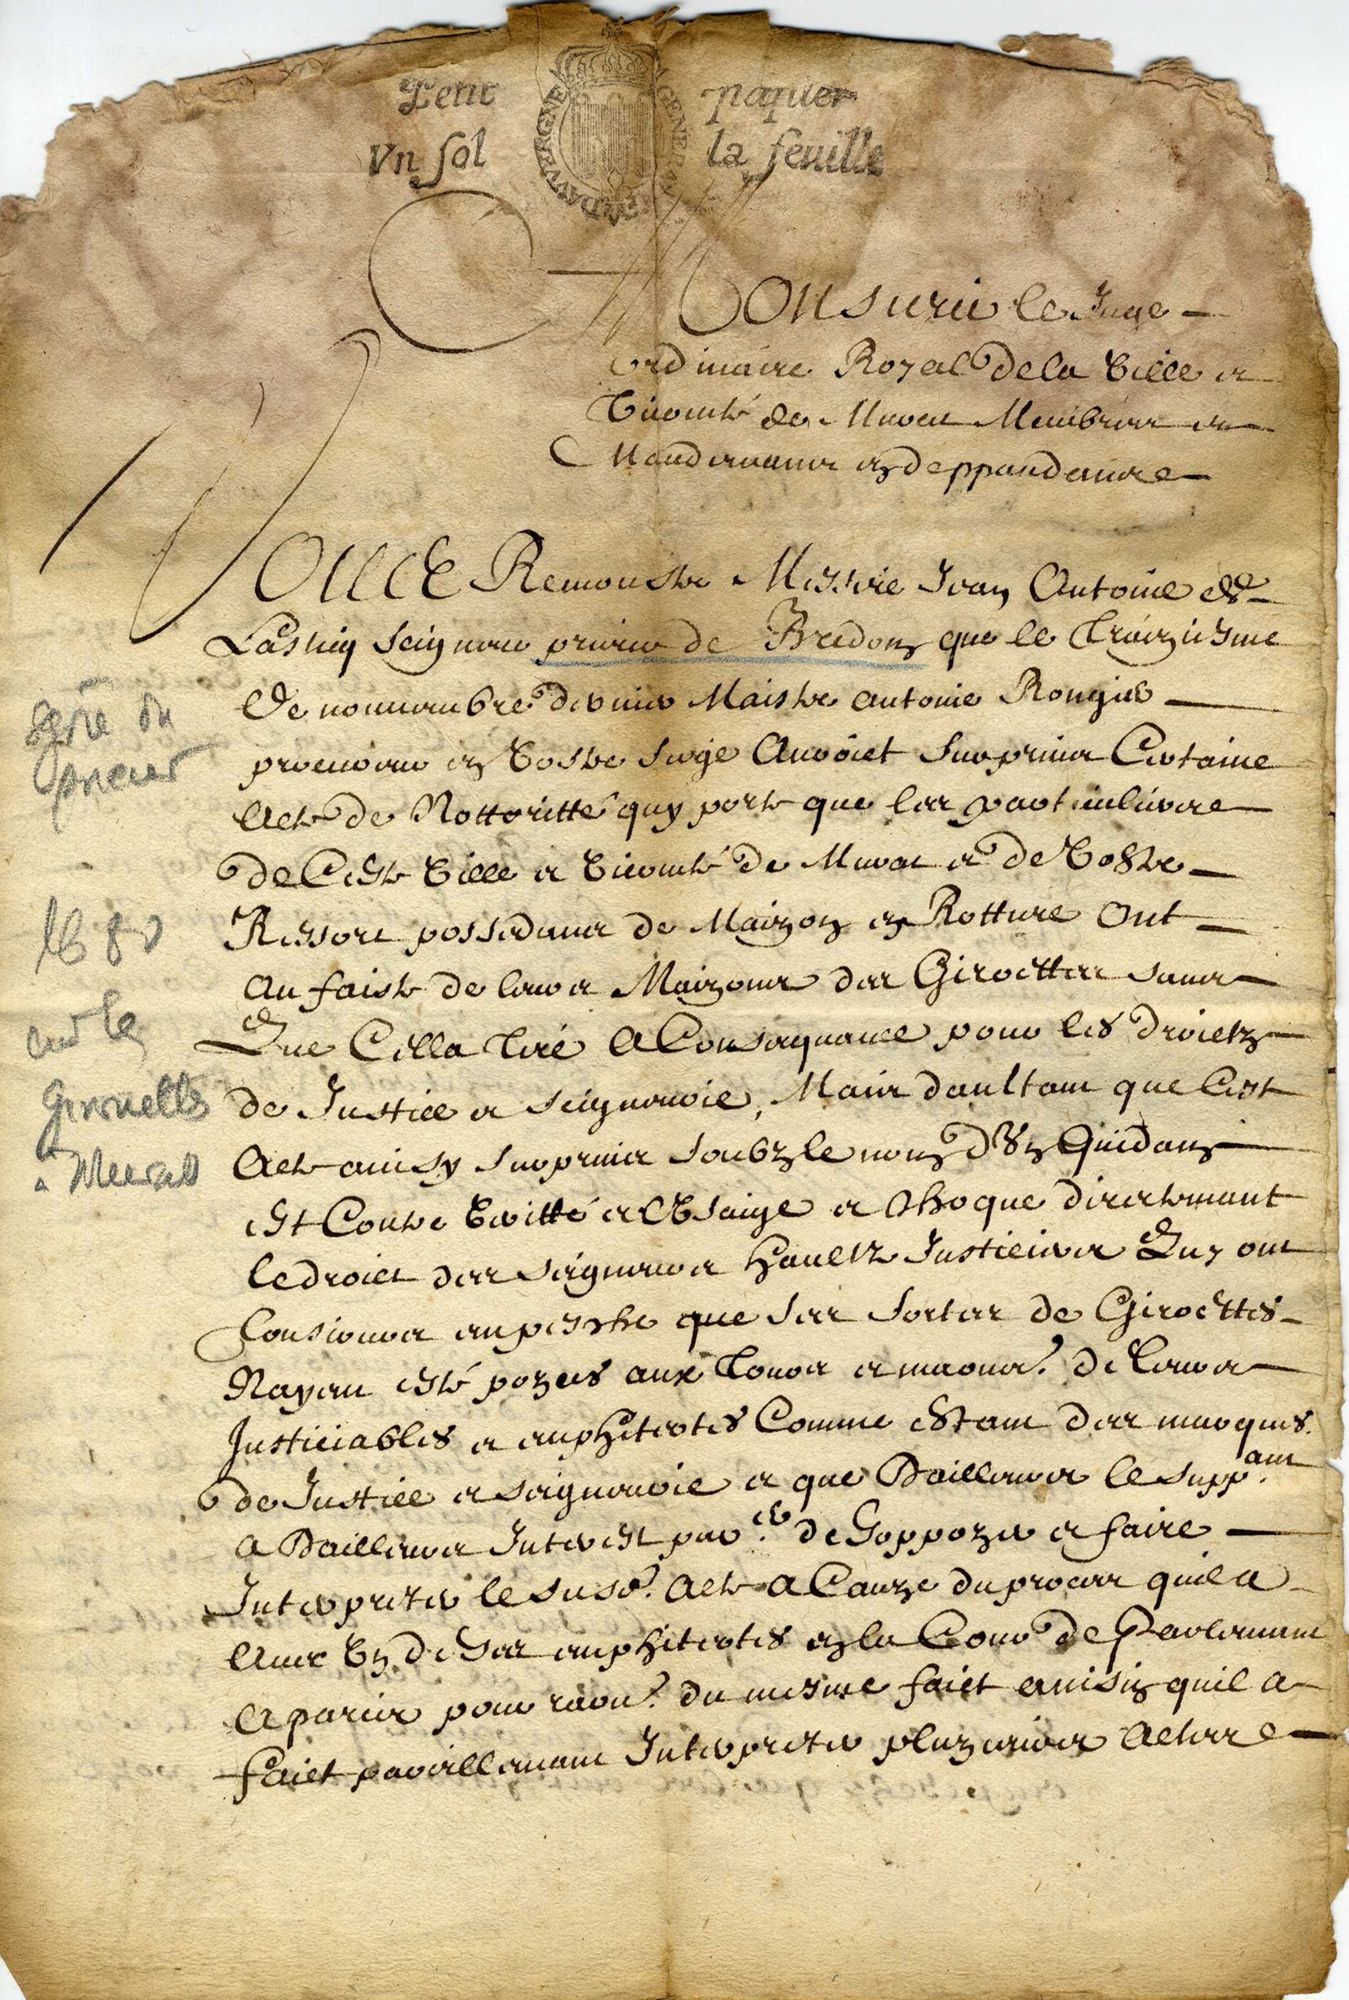 Petit papier
Vn sol la feuille
GENER DAVVERGNE
Monsieur le Juge
ordinaire Royal de la Ville et
Vicomté de Murat Membres et
Mandemans en deppandance
Vous Remonstre Messire Jean Antoine de
Lastic Seigneur prieur de Bredon que le treiziesme
de nouuembre dernier Maistre Antoine Rongier
procureur en vostre siege Auroict surprins Certaine
Acte de Nottoritté quy porte que les particuliers
de Ceste Ville et Vicomté de Murat et de Vostre
Ressort possedans de Maizon en Rotture Ont
au faiste de leurs Maizons des Giroettes sans
Que Cella tire A Consequance pour les droictz
de Justice et seigneurie, Mais daultant que Cest
Acte ainsy surprins soubz le nom d'Vn Quidan
est Contre Veritté et lVsaige et choque directemant
le droict des seigneurs Haultz Justiciers Quy ont
tousiours enpesche que ses sortes de Giroettes
Nayent esté pozees aux tours et maons. de leurs
Justiciables et enphiteotes Comme estant des marques
de Justice et seigneurie et que Dailleurs le suppant
A Dailleurs Interest par.er de Soppozer et faire
Interpreter le susd. Acte A Cauze du proces quil a
Auec Vn de Ses enphiteotes en la Cour de Parlemant
A paris pour raon. du mesme faict ainsin quil a
faict pareillemant Interpreter pluzieurs Actes
prieur
1680
sur les
Girouettes
a Murat